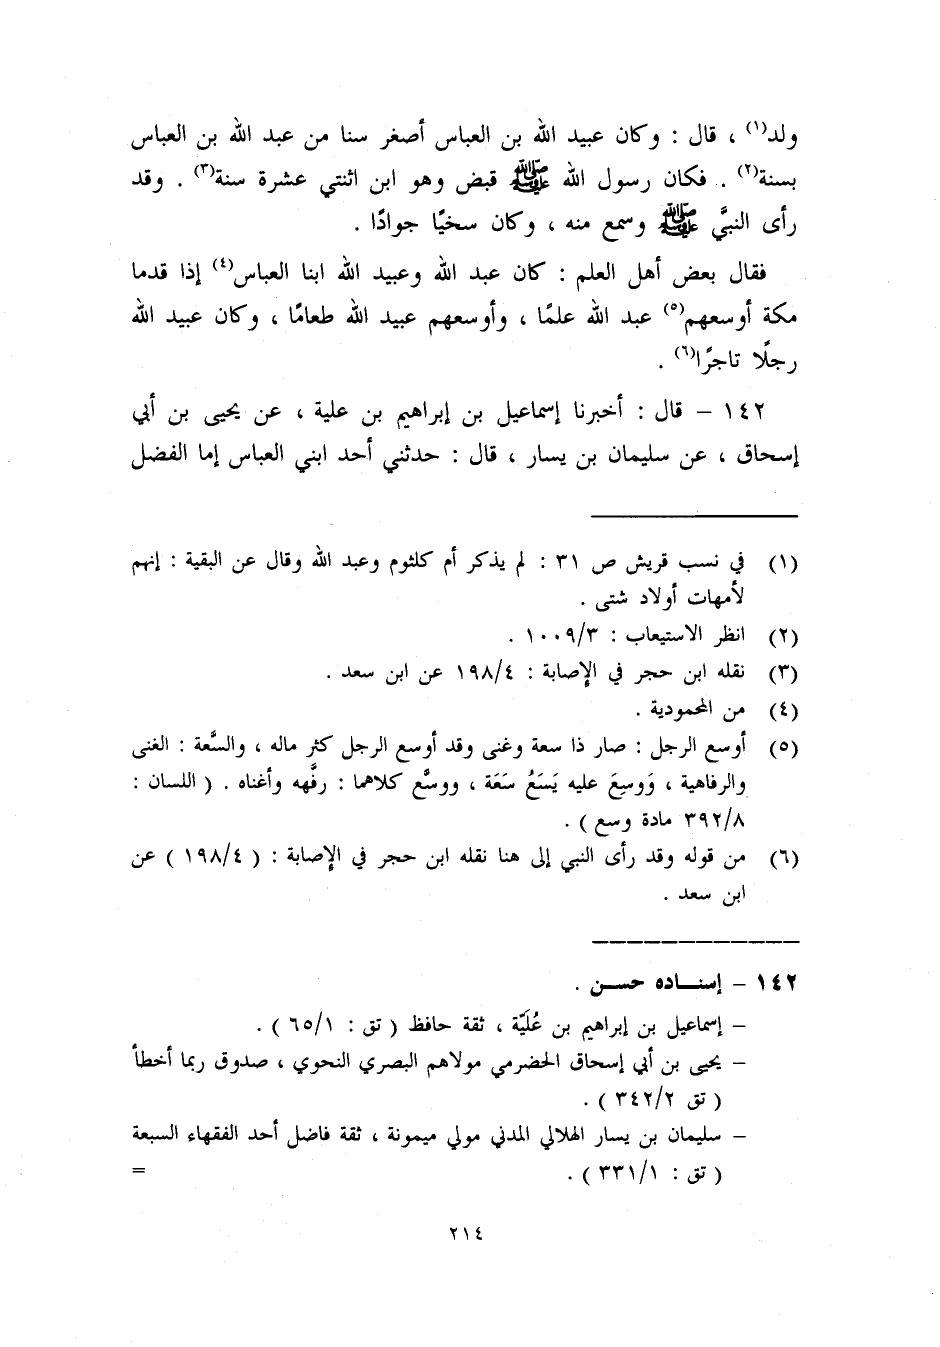 ولد(١) ، قال : وكان عبيد الله بن العباس أصغر سنا من عبد الله بن العباس
بسنة(٢) . فكان رسول الله ﷺ قبض وهو ابن اثنتي عشرة سنة(٣) . وقد
رأى النبيَّ ﷺ وسمع منه ، وكان سخيًا جوادًا .
فقال بعض أهل العلم : كان عبد الله وعبيد الله ابنا العباس(٤) إذا قدما
مكة أوسعهم(٥) عبد الله علمًا ، وأوسعهم عبيد الله طعامًا ، وكان عبيد الله
رجلًا تاجرًا(٦) .
١٤٢ – قال : أخبرنا إسماعيل بن إبراهيم بن علية ، عن يحيى بن أبي
إسحاق ، عن سليمان بن يسار ، قال : حدثني أحد ابني العباس إما الفضل
(١) في نسب قريش ص ٣١ : لم يذكر أم كلثوم وعبد الله وقال عن البقية : إنهم
لأمهات أولاد شتى .
(٢) انظر الاستيعاب : ١٠٠٩/٣ .
(٣) نقله ابن حجر في الإصابة : ١٩٨/٤ عن ابن سعد .
(٤) من المحمودية .
(٥) أوسع الرجل : صار ذا سعة وغنى وقد أوسع الرجل كثر ماله ، والسَّعة : الغنى
والرفاهية ، وَوسِعَ عليه يَسَعُ سَعَة ، ووسَّع كلاهما : رفَّهه وأغناه . ( اللسان :
٣٩٢/٨ مادة وسع ) .
(٦) من قوله وقد رأى النبي إلى هنا نقله ابن حجر في الإصابة : ( ١٩٨/٤ ) عن
ابن سعد .
١٤٢ – إسناده حسن .
– إسماعيل بن إبراهيم بن عُلَيّة ، ثقة حافظ ( تق : ٦٥/١ ) .
– يحيى بن أبي إسحاق الحضرمي مولاهم البصري النحوي ، صدوق ربما أخطأ
( تق ٣٤٢/٢ ) .
– سليمان بن يسار الهلالي المدني مولي ميمونة ، ثقة فاضل أحد الفقهاء السبعة
( تق : ٣٣١/١ ) . =
٢١٤